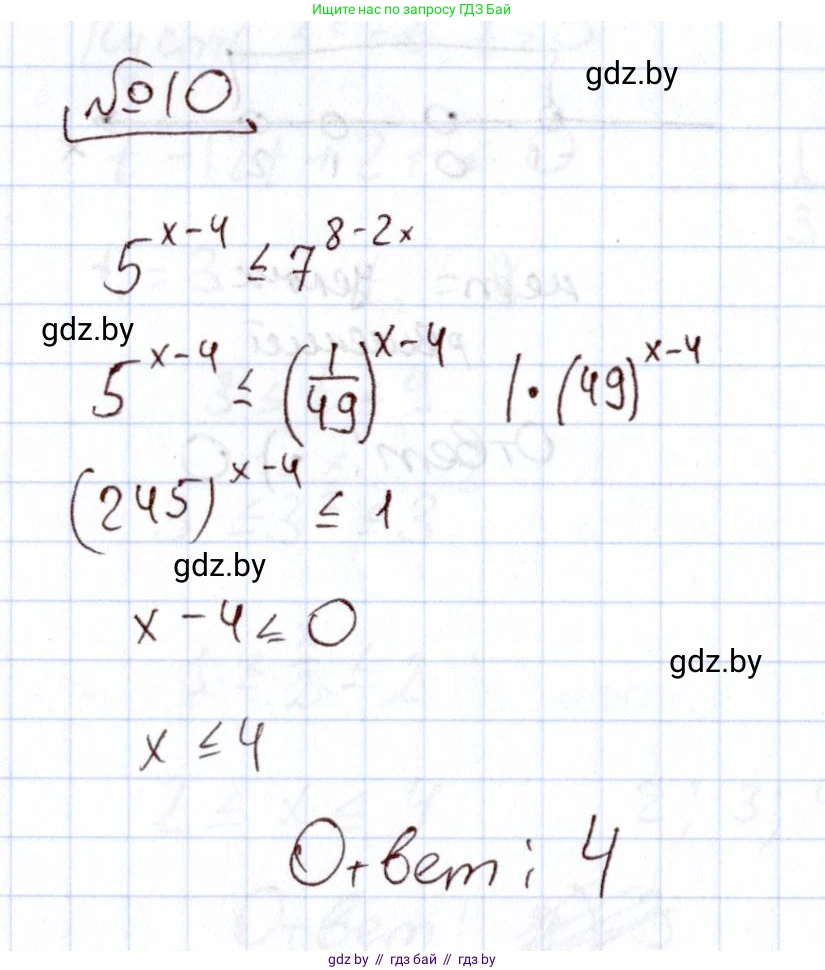 Ищите нас по запросу ГДЗ Бай
№10
gdz.by
5^{x-4} ≤ 7^{8-2x}
gdz.by
5^{x-4} ≤ (1/49)^{x-4} | · (49)^{x-4}
(245)^{x-4} ≤ 1
gdz.by
x - 4 ≤ 0
gdz.by
x ≤ 4
Ответ: 4
gdz.by // гдз бай // gdz.by